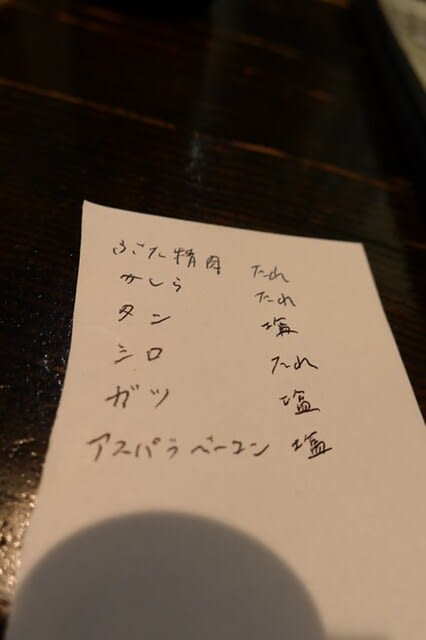 ぶた精肉 たれ
かしら たれ
タン 塩
シロ たれ
ガツ 塩
アスパラベーコン 塩